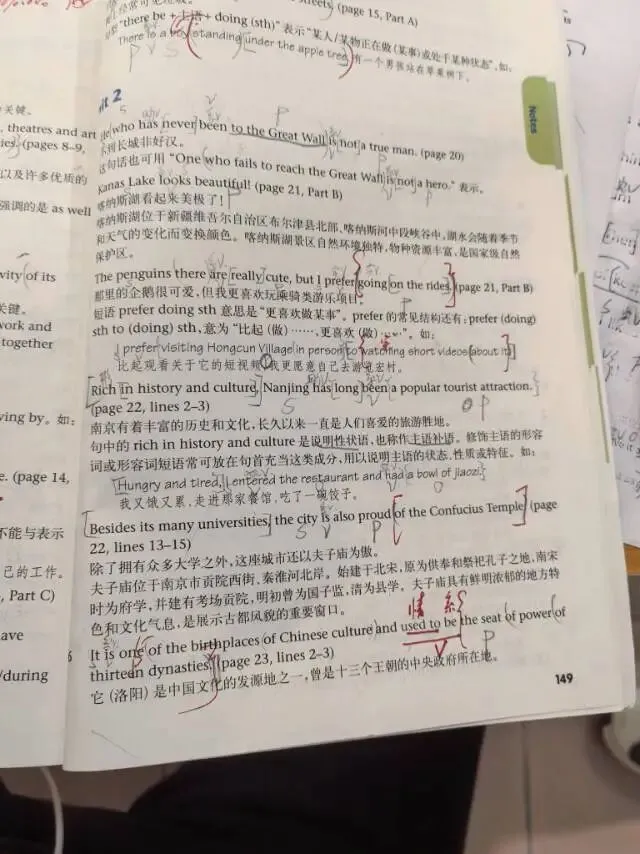 streets. (page 15, Part A)
"there be + 主语 + doing (sth)" 表示"某人/某物正在做(某事)或处于某种状态",如:
There is a boy standing under the apple tree. 有一个男孩站在苹果树下。
Notes
who has never been to the Great Wall is not a true man. (page 20)
不到长城非好汉。
这句话也可用 "One who fails to reach the Great Wall is not a hero." 表示。
Kanas Lake looks beautiful! (page 21, Part B)
喀纳斯湖看起来美极了!
喀纳斯湖位于新疆维吾尔自治区布尔津县北部,喀纳斯河中段峡谷中,湖水会随着季节
和天气的变化而变换颜色。喀纳斯湖景区自然环境独特,物种资源丰富,是国家级自然
保护区。
The penguins there are really cute, but I prefer going on the rides. (page 21, Part B)
那里的企鹅很可爱,但我更喜欢玩乘骑类游乐项目。
短语 prefer doing sth 意思是"更喜欢做某事"。prefer 的常见结构还有: prefer (doing)
sth to (doing) sth, 意为"比起(做)……,更喜欢(做)……"。如:
I prefer visiting Hongcun Village in person to watching short videos about it.
比起观看关于它的短视频,我更愿意自己去游览宏村。
Rich in history and culture, Nanjing has long been a popular tourist attraction.
(page 22, lines 2–3)
南京有着丰富的历史和文化,长久以来一直是人们喜爱的旅游胜地。
句中的 rich in history and culture 是说明性状语,也称作主语补语。修饰主语的形容
词或形容词短语常可放在句首充当这类成分,用以说明主语的状态、性质或特征。如:
Hungry and tired, I entered the restaurant and had a bowl of jiaozi.
我又饿又累,走进那家餐馆,吃了一碗饺子。
Besides its many universities, the city is also proud of the Confucius Temple. (page
22, lines 13–15)
除了拥有众多大学之外,这座城市还以夫子庙为傲。
夫子庙位于南京市贡院西街,秦淮河北岸。始建于北宋,原为供奉和祭祀孔子之地,南宋
时为府学,并建有考场贡院,明初曾为国子监,清为县学。夫子庙具有鲜明浓郁的地方特
色和文化气息,是展示古都风貌的重要窗口。
情 系
It is one of the birthplaces of Chinese culture and used to be the seat of power of
thirteen dynasties. (page 23, lines 2–3)
它(洛阳)是中国文化的发源地之一,曾是十三个王朝的中央政府所在地。
149
关键。
, theatres and art
(pages 8–9,
以及许多优质的
强调的是 as well
vity of its
关键。
work and
together
ving by。如:
e. (page 14,
不能与表示
己的工作。
, Part C)
ave
/during